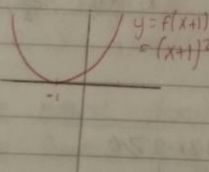 y = f(x+1)
= (x+1)²
-1